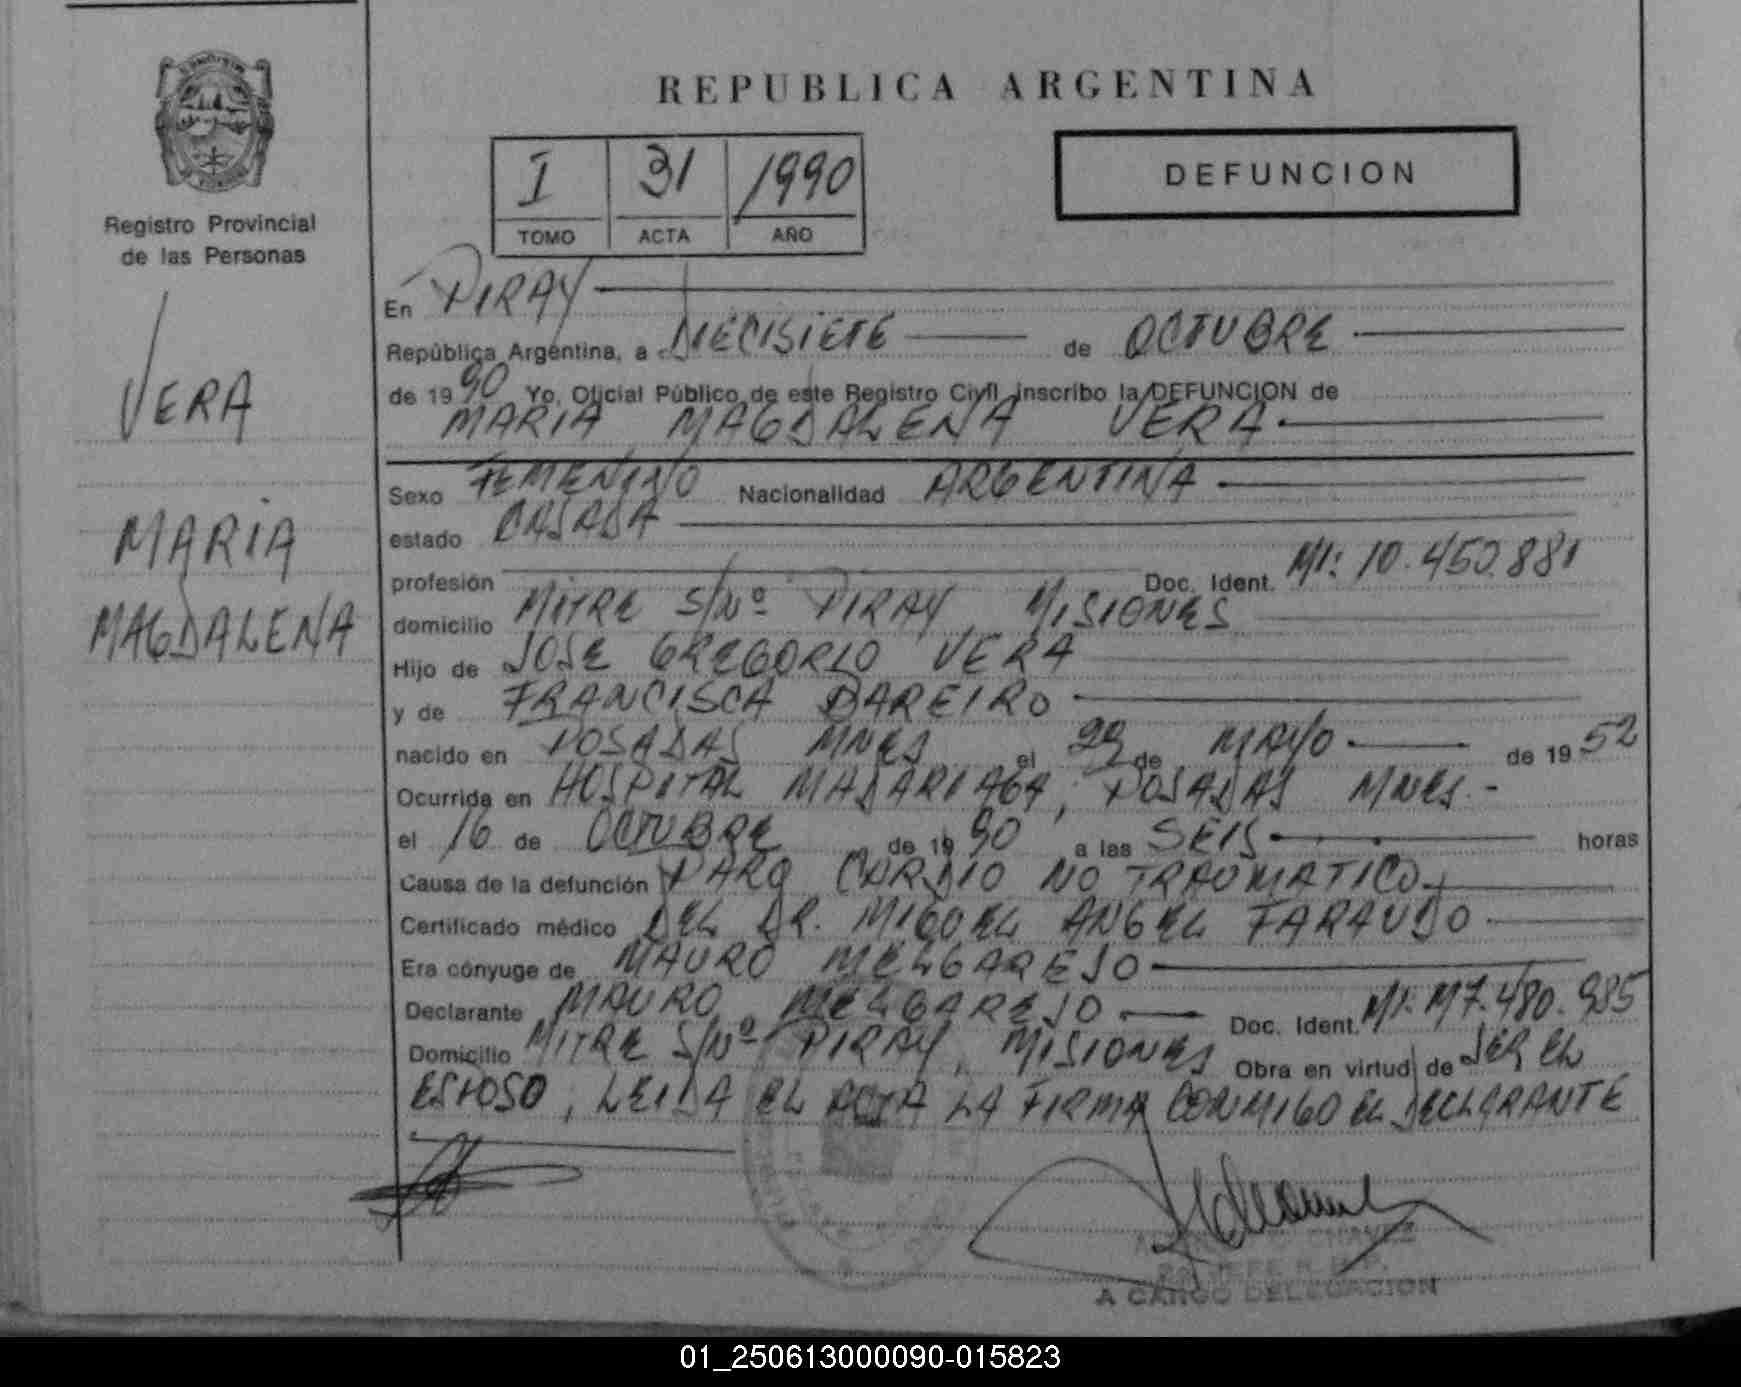 REPUBLICA ARGENTINA
I 31 1990
TOMO ACTA AÑO
DEFUNCION
Registro Provincial
de las Personas
VERA
MARIA
MAGDALENA
En PIRAY
República Argentina, a DIECISIETE de OCTUBRE
de 1990 Yo, Oficial Público de este Registro Civil inscribo la DEFUNCION de
MARIA MAGDALENA VERA.
Sexo FEMENINO Nacionalidad ARGENTINA
estado CASADA
profesión Doc. Ident. MI: 10.450.881
domicilio MITRE S/Nº PIRAY, MISIONES
Hijo de JOSE GREGORIO VERA
y de FRANCISCA BAREIRO
nacido en POSADAS MNES el 29 de MAYO de 1952
Ocurrida en HOSPITAL MADARIAGA, POSADAS MNES.-
el 16 de OCTUBRE de 1990 a las SEIS horas
Causa de la defunción PARO CARDIO NO TRAUMATICO
Certificado médico DEL DR. MIGUEL ANGEL
Era cónyuge de MAURO MELGAREJO
Declarante MAURO MELGAREJO Doc. Ident. MI: M7.480.985
Domicilio MITRE S/Nº PIRAY, MISIONES Obra en virtud de SER EL
ESPOSO, LEIDA EL ACTA LA FIRMA CONMIGO EL DECLARANTE
A CARGO DELEGACION
01_250613000090-015823